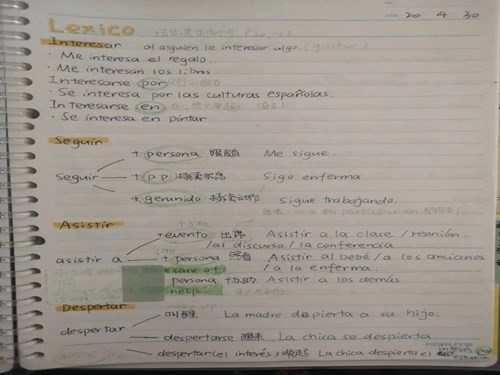 Lexico
20 4 30
Interesar al alguien le interesar algo. (gustar)
· Me interesa el regalo.
· Me interesan los libros
Interesarse por
· Se interesa por las culturas españolas.
Interesarse en
· Se interesa en pintar
Seguir
+ persona 跟隨 Me sigue.
Seguir + p.p 持續狀態 Sigo enferma.
+ gerundio 持續動作 Sigue trabajando.
Asistir
+ evento 出席 Asistir a la clase / reunión.
/ al discurso / la conferencia
asistir a + persona 照看 Asistir al bebé / a los ancianos
take care of / a la enferma.
persona 協助 Asistir a los demás
help
Despertar
叫醒 La madre despierta a su hijo.
despertar despertarse 醒來 La chica se despierta
despertar (el interés) 喚起 La chica despierta el